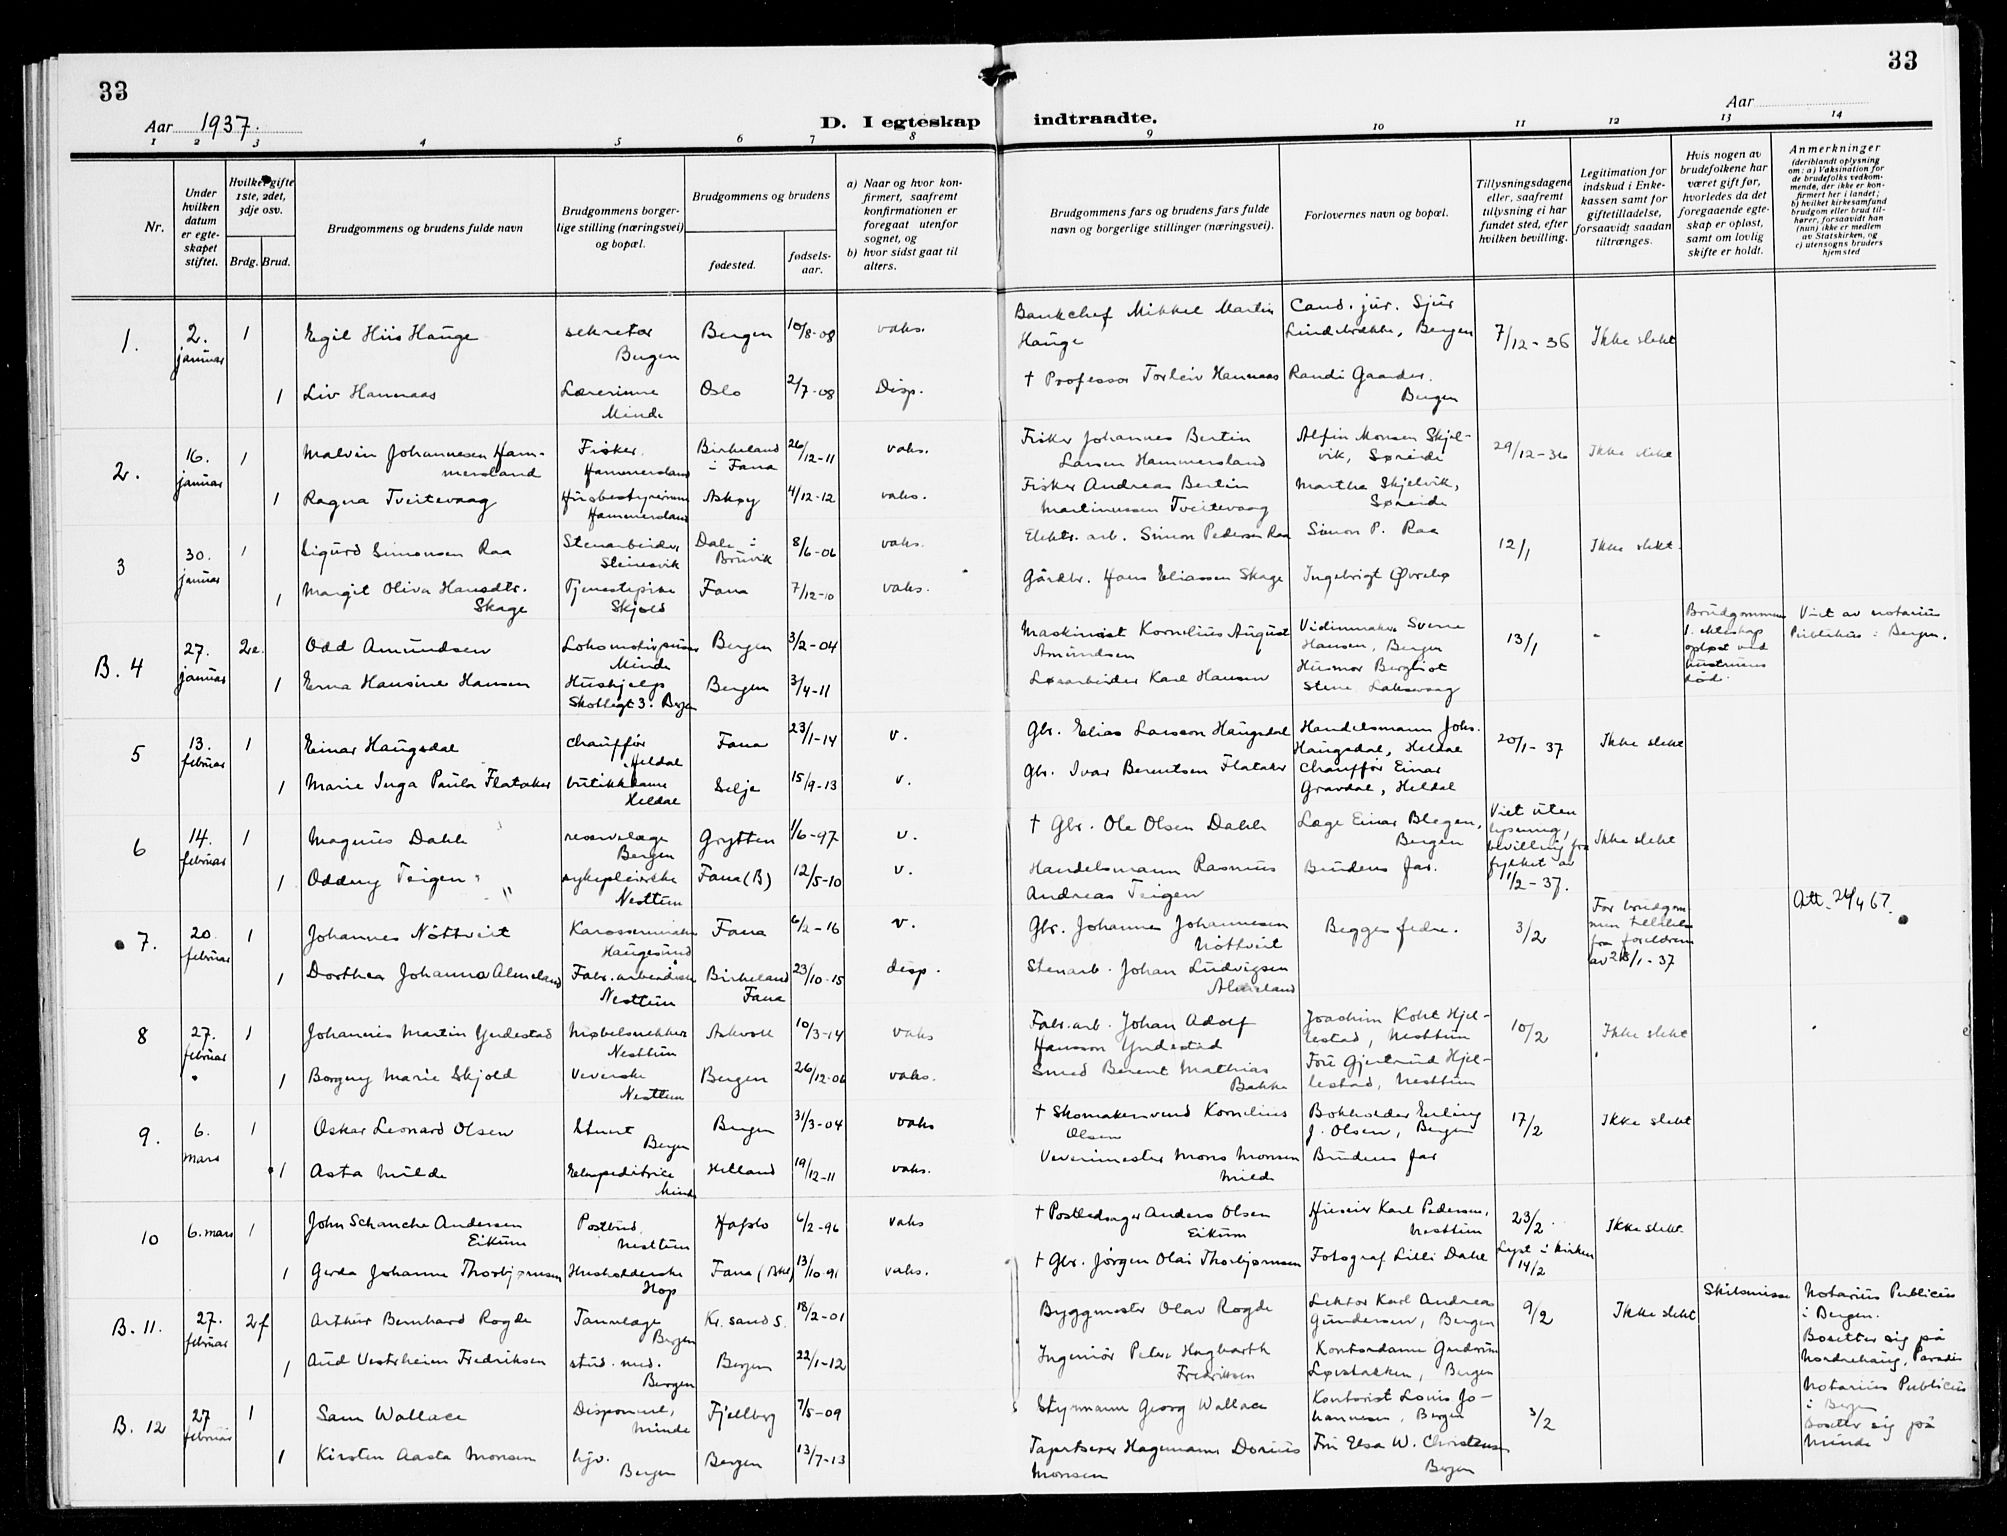 33
33
Aar 1937.
D. I egteskap indtraadte.
Aar
1 2 3 4 5 6 7 8 9 10 11 12 13 14
Nr.
Under hvilken datum er egteskapet stiftet.
Hvilket gifte 1ste, 2det, 3dje osv.
Brdg. Brud.
Brudgommens og brudens fulde navn
Brudgommens borgerlige stilling (næringsvei) og bopæl.
Brudgommens og brudens
fødested.
fødselsaar.
a) Naar og hvor konfirmert, saafremt konfirmationen er foregaat utenfor sognet, og
b) hvor sidst gaat til alters.
Brudgommens fars og brudens fars fulde navn og borgerlige stillinger (næringsvei).
Forlovernes navn og bopæl.
Tillysningsdagene eller, saafremt tillysning ei har fundet sted, efter hvilken bevilling.
Legitimation for indskud i Enkekassen samt for giftetilladelse, forsaavidt saadan tiltrænges.
Hvis nogen av brudefolkene har været gift før, hvorledes da det foregaaende egteskap er opløst, samt om lovlig skifte er holdt.
Anmerkninger
(deriblandt oplysning om: a) Vaksination for de brudefolks vedkommende, der ikke er konfirmert her i landet; b) hvilket kirkesamfund brudgom eller brud tilhører, forsaavidt han (hun) ikke er medlem av Statskirken, og c) utensogns bruders hjemsted
1. 2. januar 1 Egil Hiis Hauge sekretær Bergen Bergen 10/8-08 vaks. Bankchef Mikkel Martin Hauge Cand. jur. Sjur Lindebrække, Bergen 7/12-36 Ikke slekt
1 Liv Hannaas Lærerinne Minde Oslo 2/7-08 Disp. † Professor Torleiv Hannaas Randi Gaarder. Bergen
2. 16. januar 1 Malvin Johannesen Hammersland Fisker. Hammersland Birkeland i Fana 26/12-11 vaks. Fisker Johannes Bertin Larsen Hammersland Alfin Monsen Skjelvik, Søreide 29/12-36 Ikke slekt
1 Ragna Tveitevaag Husbestyrerinne Hammersland Askøy 4/12-12 vaks. Fisker Andreas Bertin Martinussen Tveitevaag Martha Skjelvik, Søreide
3 30. januar 1 Sigurd Simonsen Raa Stenarbeider Steinsvik Dale i Bruvik 8/6-06 vaks. Elektr. arb. Simon Pedersen Raa Simon P. Raa 12/1 Ikke slekt.
1 Margit Oliva Hansdtr. Skage Tjenestepike Skjold Fana 7/12-10 vaks. Gårdbr. Hans Eliassen Skage Ingebrigt Øvrebø
B. 4 27. januar 2e. Odd Amundsen Lokomotivpusser Minde Bergen 3/2-04 Maskinist Kornelius August Amundsen Sverre Hansen, Bergen 13/1 - Brudgommens 1. ekteskap opløst ved hustruens død. Viet av notarius Publikus i Bergen.
1 Erna Hansine Hansen Hushjelp Skottegt 3. Bergen Bergen 3/4-11 Løsarbeider Karl Hansen Husmor Bergliot Stene Laksevaag
5 13. februar 1 Einar Haugsdal chauffør Heldal Fana 23/1-14 v. Gbr. Elias Larsson Haugsdal Handelsmann Johs. Haugsdal, Heldal 20/1-37 Ikke slekt
1 Marie Inga Paula Flataker butikkdame Heldal Selje 15/9-13 v. Gbr. Ivar Berentsen Flataker Chauffør Einar Gravdal, Heldal
6 14. februar 1 Magnus Dahle reservelæge Bergen Grytten 1/6-97 v. † Gbr. Ole Olsen Dahle Læge Einar Blegen, Bergen Viet uten lysning, bevilling fra fylket av 1/2-37. Ikke slekt
1 Oddny Teigen sykepleierske Nesttun Fana (B) 12/5-10 v. Handelsmann Rasmus Andreas Teigen Brudens far.
7. 20. februar 1 Johannes Nöttveit Karosserimaker Haugesund Fana 6/2-16 v. Gbr. Johannes Johannesen Nöttveit Begges fedre. 3/2 For brudgommen tillatelse fra foreldrene av 28/1-37 Att. 24/4 67.
1 Dorthea Johanna Almeland Fabr. arbeiderske Nesttun Birkeland Fana 23/10-15 disp. Stenarb. Johan Ludvigsen Almeland
8 27. februar 1 Johannes Martin Yndestad Møbelsnekker Nesttun Askvoll 10/3-14 vaks Fabr. arb. Johan Adolf Hansson Yndestad Joachim Kohl Hjellestad, Nesttun 10/2 Ikke slekt
1 Borgny Marie Skjold Veverske Nesttun Bergen 26/12-06 vaks. Smed Berent Mathias Bakke Fru Gjertrud Hjellestad, Nesttun
9. 6. mars 1 Oskar Leonard Olsen Bergen Bergen 31/3-04 vaks † Skomakersvend Kornelius Olsen Bokholder Erling J. Olsen, Bergen 17/2 Ikke slekt
1 Asta Milde Ekspeditrice Minde Helland 19/12-11 vaks. Vevermester Mons Monsen Milde Brudens far
10 6. mars 1 John Schanche Andersen Eikum Postbud, Nesttun Hafslo 6/2-96 vaks † Anders Olsen Eikum Karl Pedersen, Nesttun 23/2. Ikke slekt.
1 Gerda Johanne Thorbjørnsen Husholderske Hop Fana (Bkl) 13/10-91 vaks. † Gbr. Jörgen Olai Thorbjørnsen Fotograf Lilli Dahl Lyst i kirken 14/2
B. 11. 27. februar 2f Arthur Bernhard Rogde Tannlæge Bergen Kr. sand S. 18/2-01 Byggmester Olav Rogde Lektor Karl Andreas Gundersen, Bergen 9/2 Ikke slekt Skilsmisse Notarius Publicus i Bergen. Bosetter sig på Nordrehaug, Paradis
1 Aud Vestrheim Fredriksen stud. med. Bergen Bergen 22/1-12 Ingeniør Peter Hagbarth Fredriksen Kontordame Gudrun Løvstakken, Bergen
B. 12 27 februar 1 Sam Wallace Disponent, Minde Fjellberg 7/5-09 Styrmann Georg Wallace Kontorist Louis Johannesen, Bergen 3/2 Notarius Publicus i Bergen Bosetter sig på Minde
1 Kirsten Aasta Monsen hjv. Bergen Bergen 13/7-13 Tapetserer Hagemann Dorius Monsen Fru Elsa W. Christensen Bergen